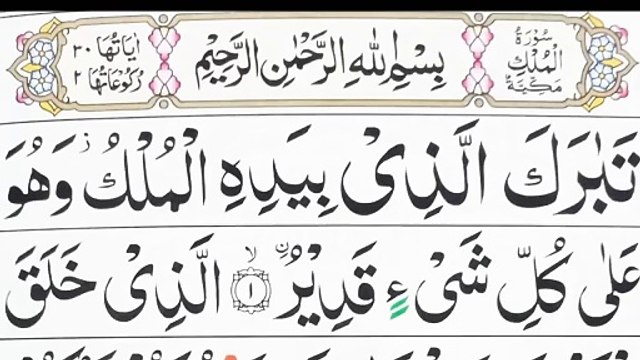 سُوْرَةُ
الْمُلْكِ
مَكِّيَّةٌ
بِسْمِ اللّٰهِ الرَّحْمٰنِ الرَّحِيْمِ
اٰيَاتُهَا ٣٠
رُكُوْعَاتُهَا ٢
تَبٰرَكَ الَّذِىْ بِيَدِهِ الْمُلْكُ ز وَهُوَ
عَلٰى كُلِّ شَىْءٍ قَدِيْرُ ۨ ۙ ﴿١﴾ الَّذِىْ خَلَقَ